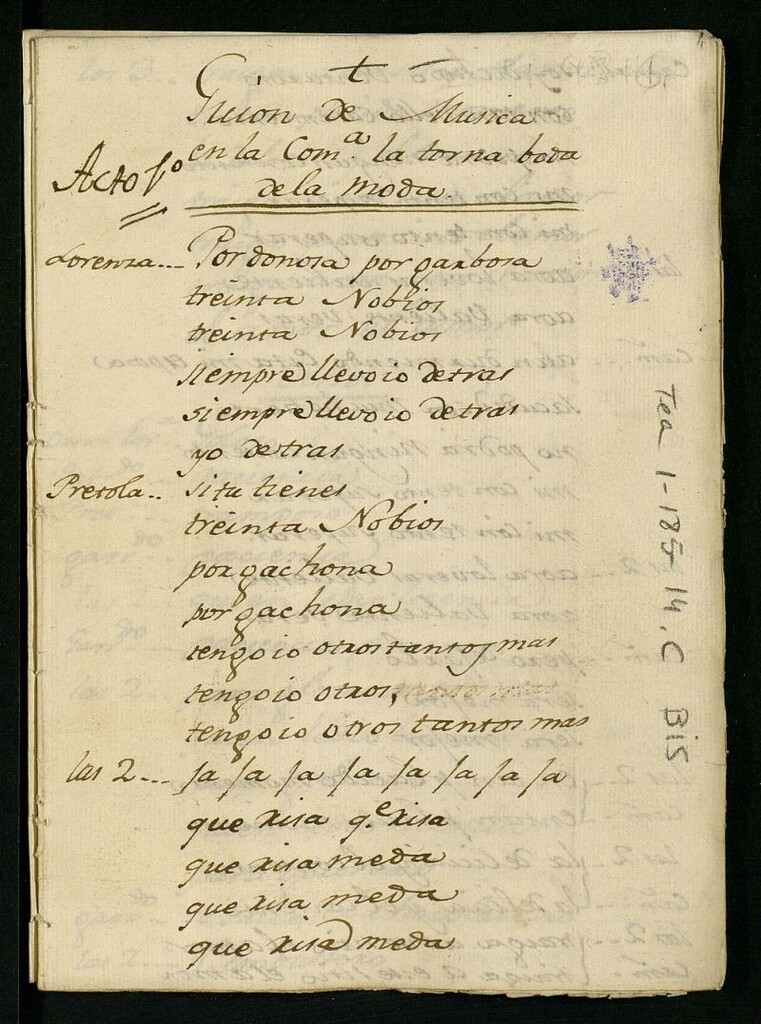 Guion de Musica
en la Com.ª la torna boda
Acto 1º
de la moda.
Lorenza... Por donosa por garbosa
treinta Nobios
treinta Nobios
siempre llevo io detras
siempre llevo io detras
yo detras
Pretola.. si tu tienes
treinta Nobios
por gachona
por gachona
tengo io otros tantos y mas
tengo io otros,
tengo io otros tantos mas
las 2... Ja Ja Ja Ja Ja Ja Ja Ja
que risa q.e risa
que risa meda
que risa meda
que risa meda
Tea 1-185-14, C BIS